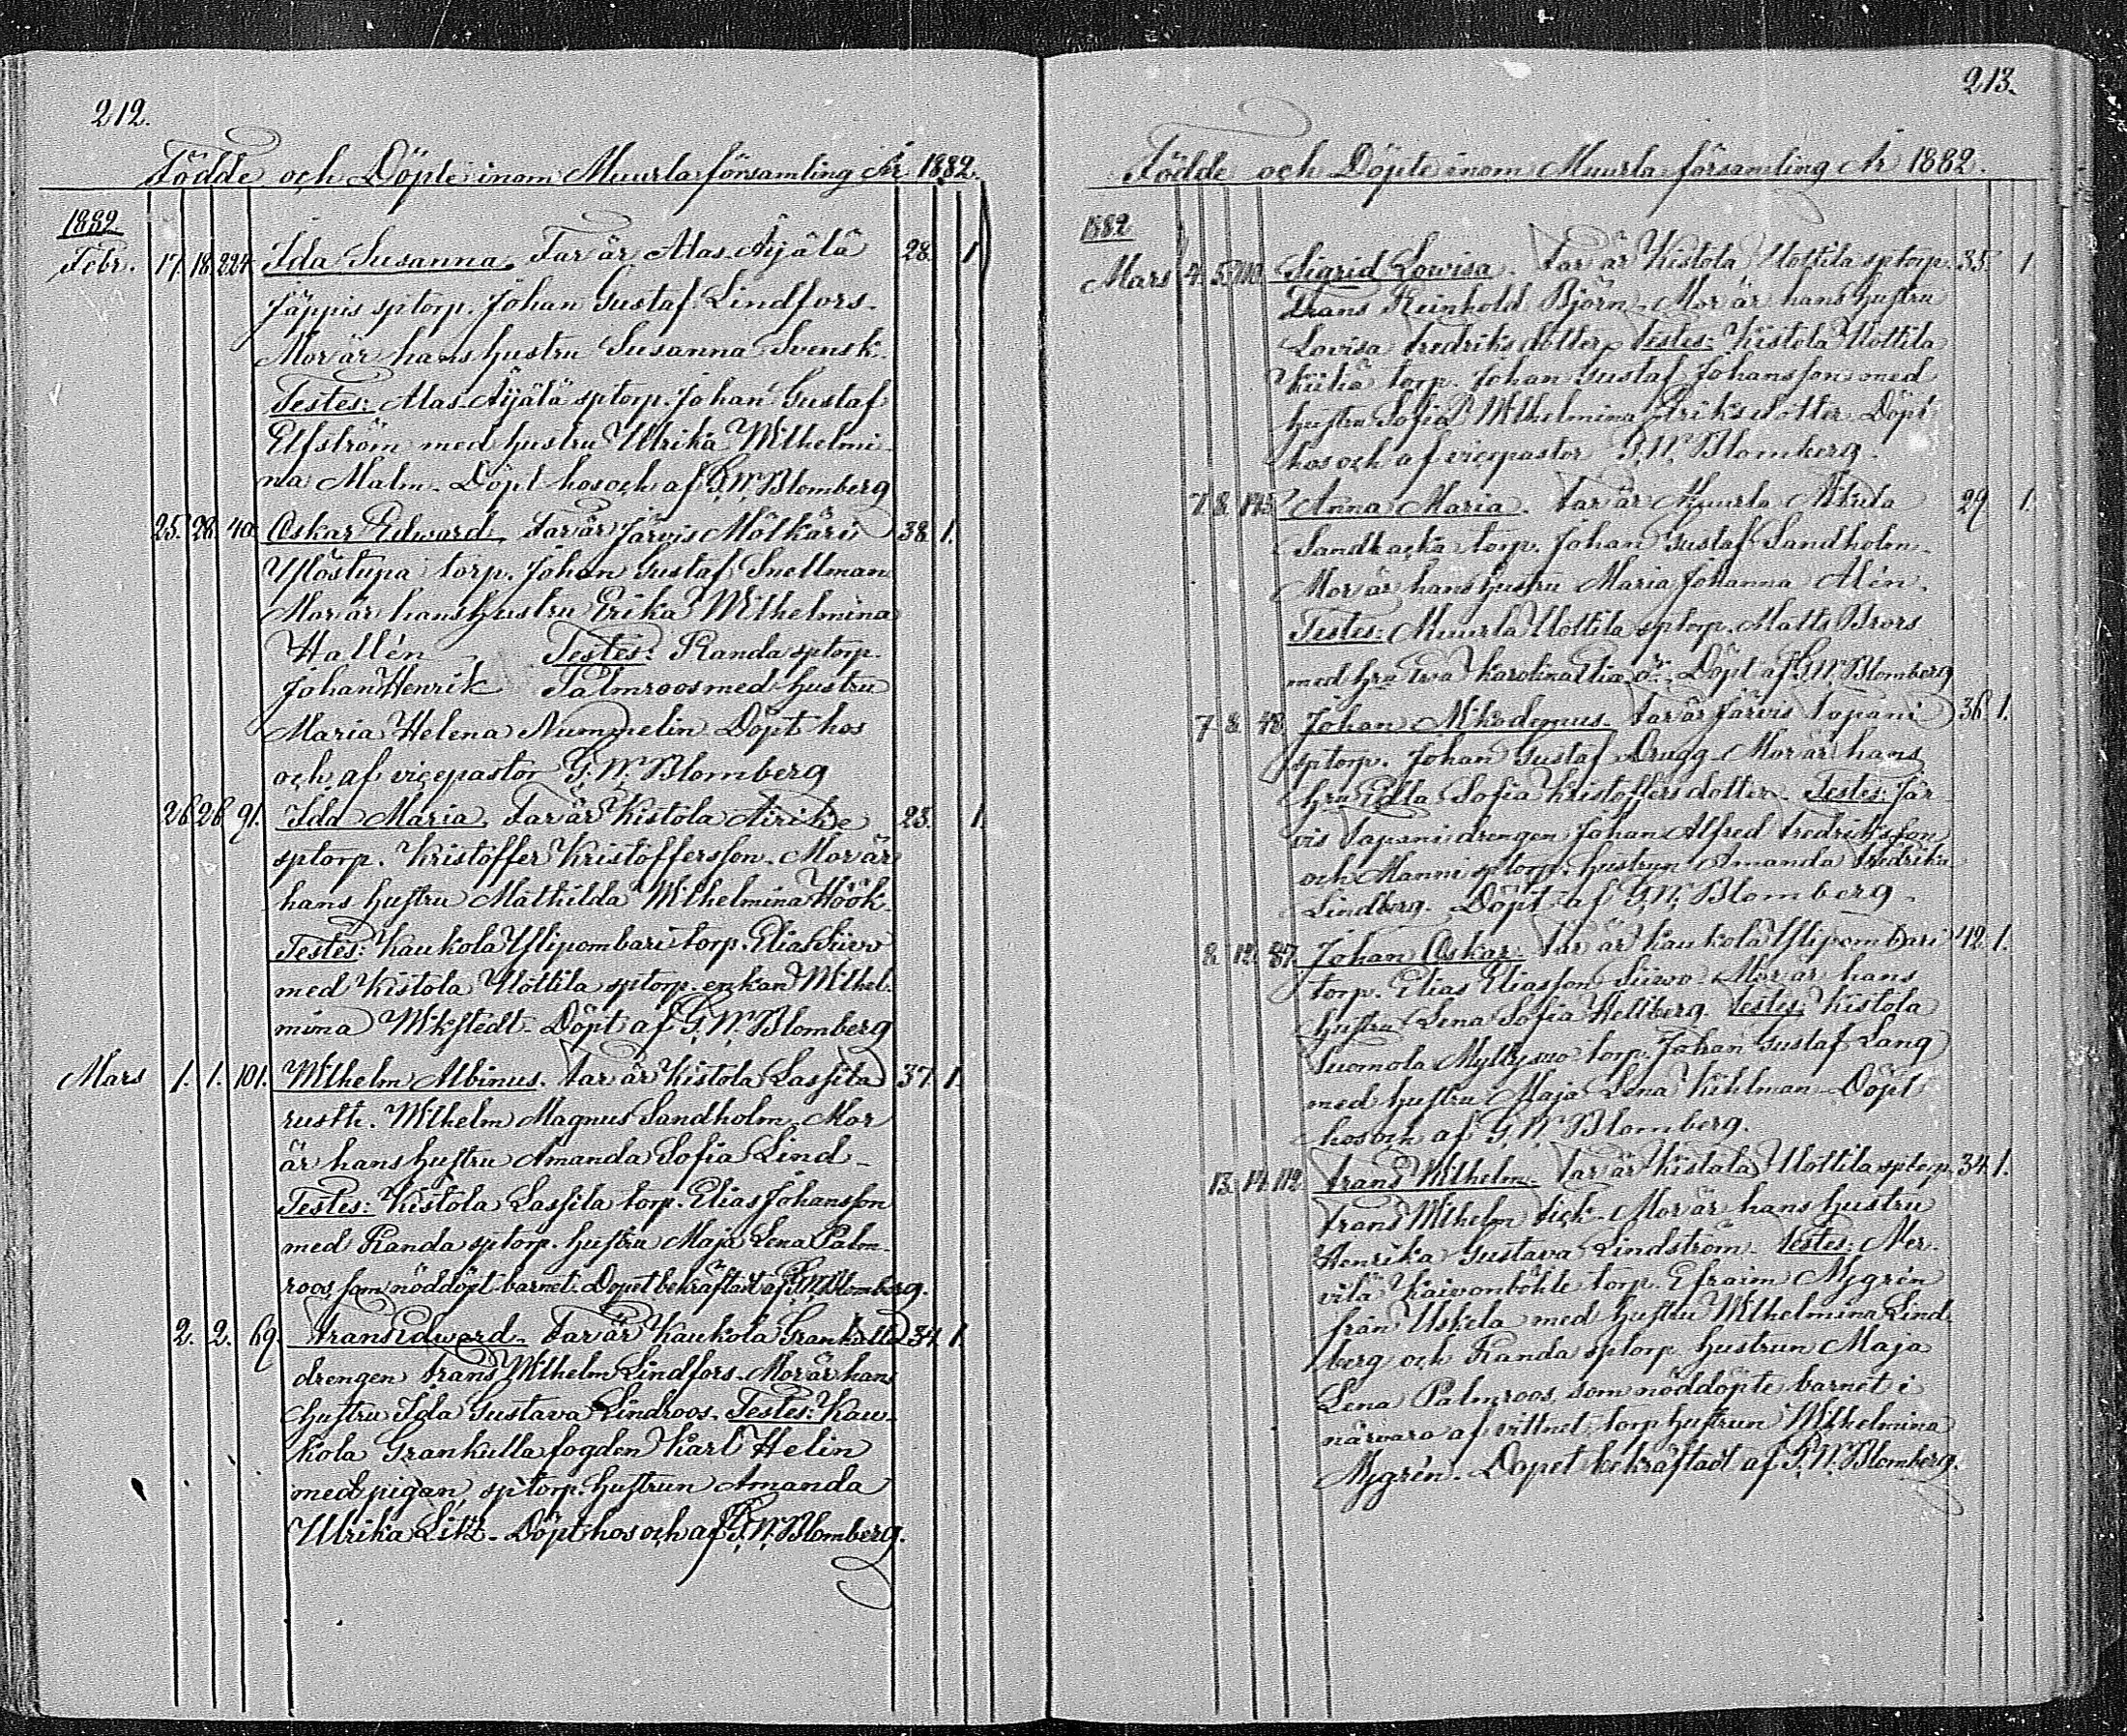 212.
Födde och Döpte inom Muurla församling År 1882.
1882
Febr. 17. 18. 224. Ida Susanna. Far är Atas. Äijälä 28. 1
Jäppis sptorp. Johan Gustaf Lindfors.
Mor är hans hustru Susanna Svensk.
Testes: Atas. Äijälä sptorp. Johan Gustaf
Elfström med hustru Ulrika Wilhelmi-
na Malm. Döpt hos och af G.W. Blomberg
25. 28. 40. Oskar Edward. Far är Järvis Mölkäri 38. 1.
Ylöstupa torp. Johan Gustaf Snellman
Mor är hans hustru Erika Wilhelmina
Hallén Testes: Randa sptorp.
Johan Henrik Palmroos med hustru
Maria Helena Nummelin Döpt hos
och af vicepastor G.W. Blomberg
26 26 91. Ida Maria. Far är Kistola Airike 23. 1.
sptorp. Kristoffer Kristoffersson. Mor är
hans hustru Mathilda Wilhelmina Höök.
Testes: Kaukola Ylipombari torp. Elias Siivo
med Kistola Uottila sptorp. enkan Wilhel-
mina Wikstedt. Döpt af G.W. Blomberg
Mars 1. 1. 101. Wilhelm Albinus. Far är Kistola Lassila 37. 1.
rusth. Wilhelm Magnus Sandholm. Mor
är hans hustru Amanda Sofia Lind-
Testes: Kistola Lassila torp. Elias Johansson
med Randa sptorp. hustru Maja Lena Palm-
roos, som nöddöpt barnet. Dopet bekräftadt af G.W. Blomberg.
2. 2. 69. Frans Edward. Far är Kaukola Grankulla 34. 1.
drengen Frans Wilhelm Lindfors. Mor är hans
hustru Ida Gustava Lindroos. Testes: Kau-
kola Grankulla fogden Karl Helin
med pigan, sptorp. hustrun Amanda
Ulrika Litz. Döpt hos och af G.W. Blomberg.
213.
Födde och Döpte inom Muurla församling År 1882.
1882
Mars 4. 5. 110. Sigrid Lowisa. Far är Kistola Uottila sptorp. 35. 1
Frans Reinhold Björn. Mor är hans hustru
Lovisa Fredriksdotter. Testes: Kistola Uottila
torp. Johan Gustaf Johansson med
hustru Sofia Wilhelmina Eriksdotter Döpt
hos och af vicepastor G.W. Blomberg.
7. 8. Anna Maria. Far är Muurla 29 1.
Sandbacka torp. Johan Gustaf Sandholm.
Mor är hans hustru Maria Johanna Alén.
Testes: Muurla Uottila sptorp. Matts Brors
med hru Eva Karolina Elia dr. Döpt af G.W. Blomberg
7 8. 48. Johan Nikodemus. Far är Järvis Tapani 36 1.
sptorp. Johan Gustaf Drugg. Mor är hans
hru Edla Sofia Kristoffersdotter. Testes: Jär-
vis Tapani drengen Johan Alfred Fredriksson
och Manni sptorp. hustrun Amanda Fredrika
Lindberg. Döpt af G.W. Blomberg.
8. 12. 87. Johan Oskar. Far är Kaukola Ylipombari 42. 1.
torp. Elias Eliasson Siivo. Mor är hans
hustru Lena Sofia Hellberg. Testes: Kistola
Suomola Myllysuo torp. Johan Gustaf Lang
med hustru Maja Lena Kihlman Döpt
hos och af G.W. Blomberg.
13. 14. 112. Frans Wilhelm. Far är Kistola Uottila sptorp. 34. 1.
Frans Wilhelm Fick. Mor är hans hustru
Henrika Gustava Lindström. Testes: Mer-
vilä torp. Efraim Mjgrén
från Uskela med hustru Wilhelmina Lind-
berg och Randa sptorp. hustrun Maja
Lena Palmroos, som nöddöpte barnet i
närvaro af vittnet, torp hustrun Wilhelmina
Mjgrén. Dopet bekräftadt af G.W. Blomberg.